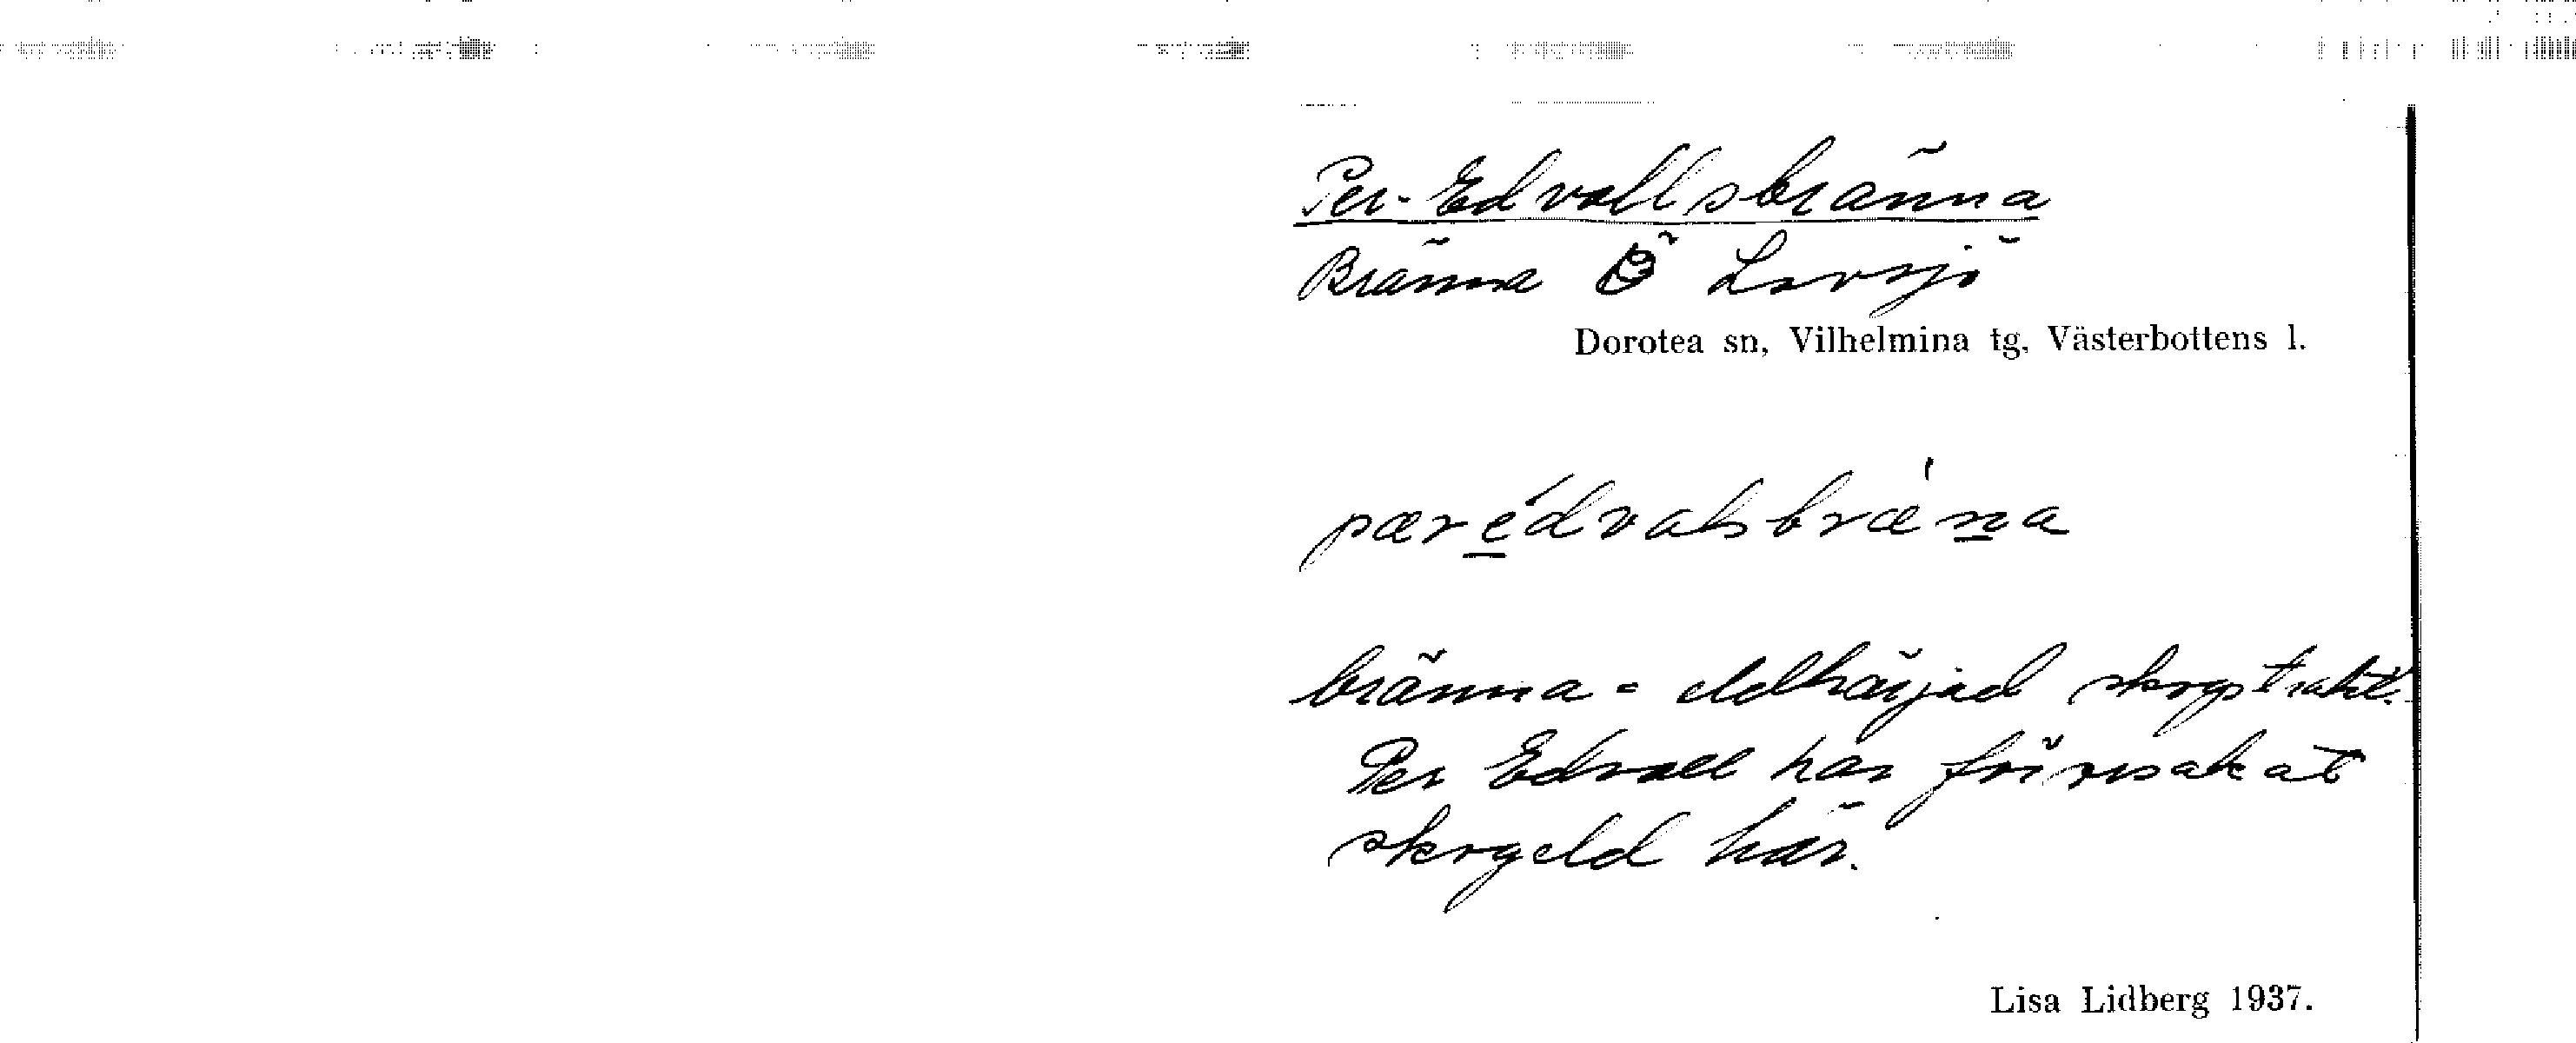 Per-Edvallsbränna
Bränna Ö Lavsjö
Dorotea sn, Vilhelmina tg, Västerbottens l.
pærédvalsbræ'na
bränna = eldhärjad skogstrakt.
Per Edvall har förorsakat
skogeld här.
Lisa Lidberg 1937.